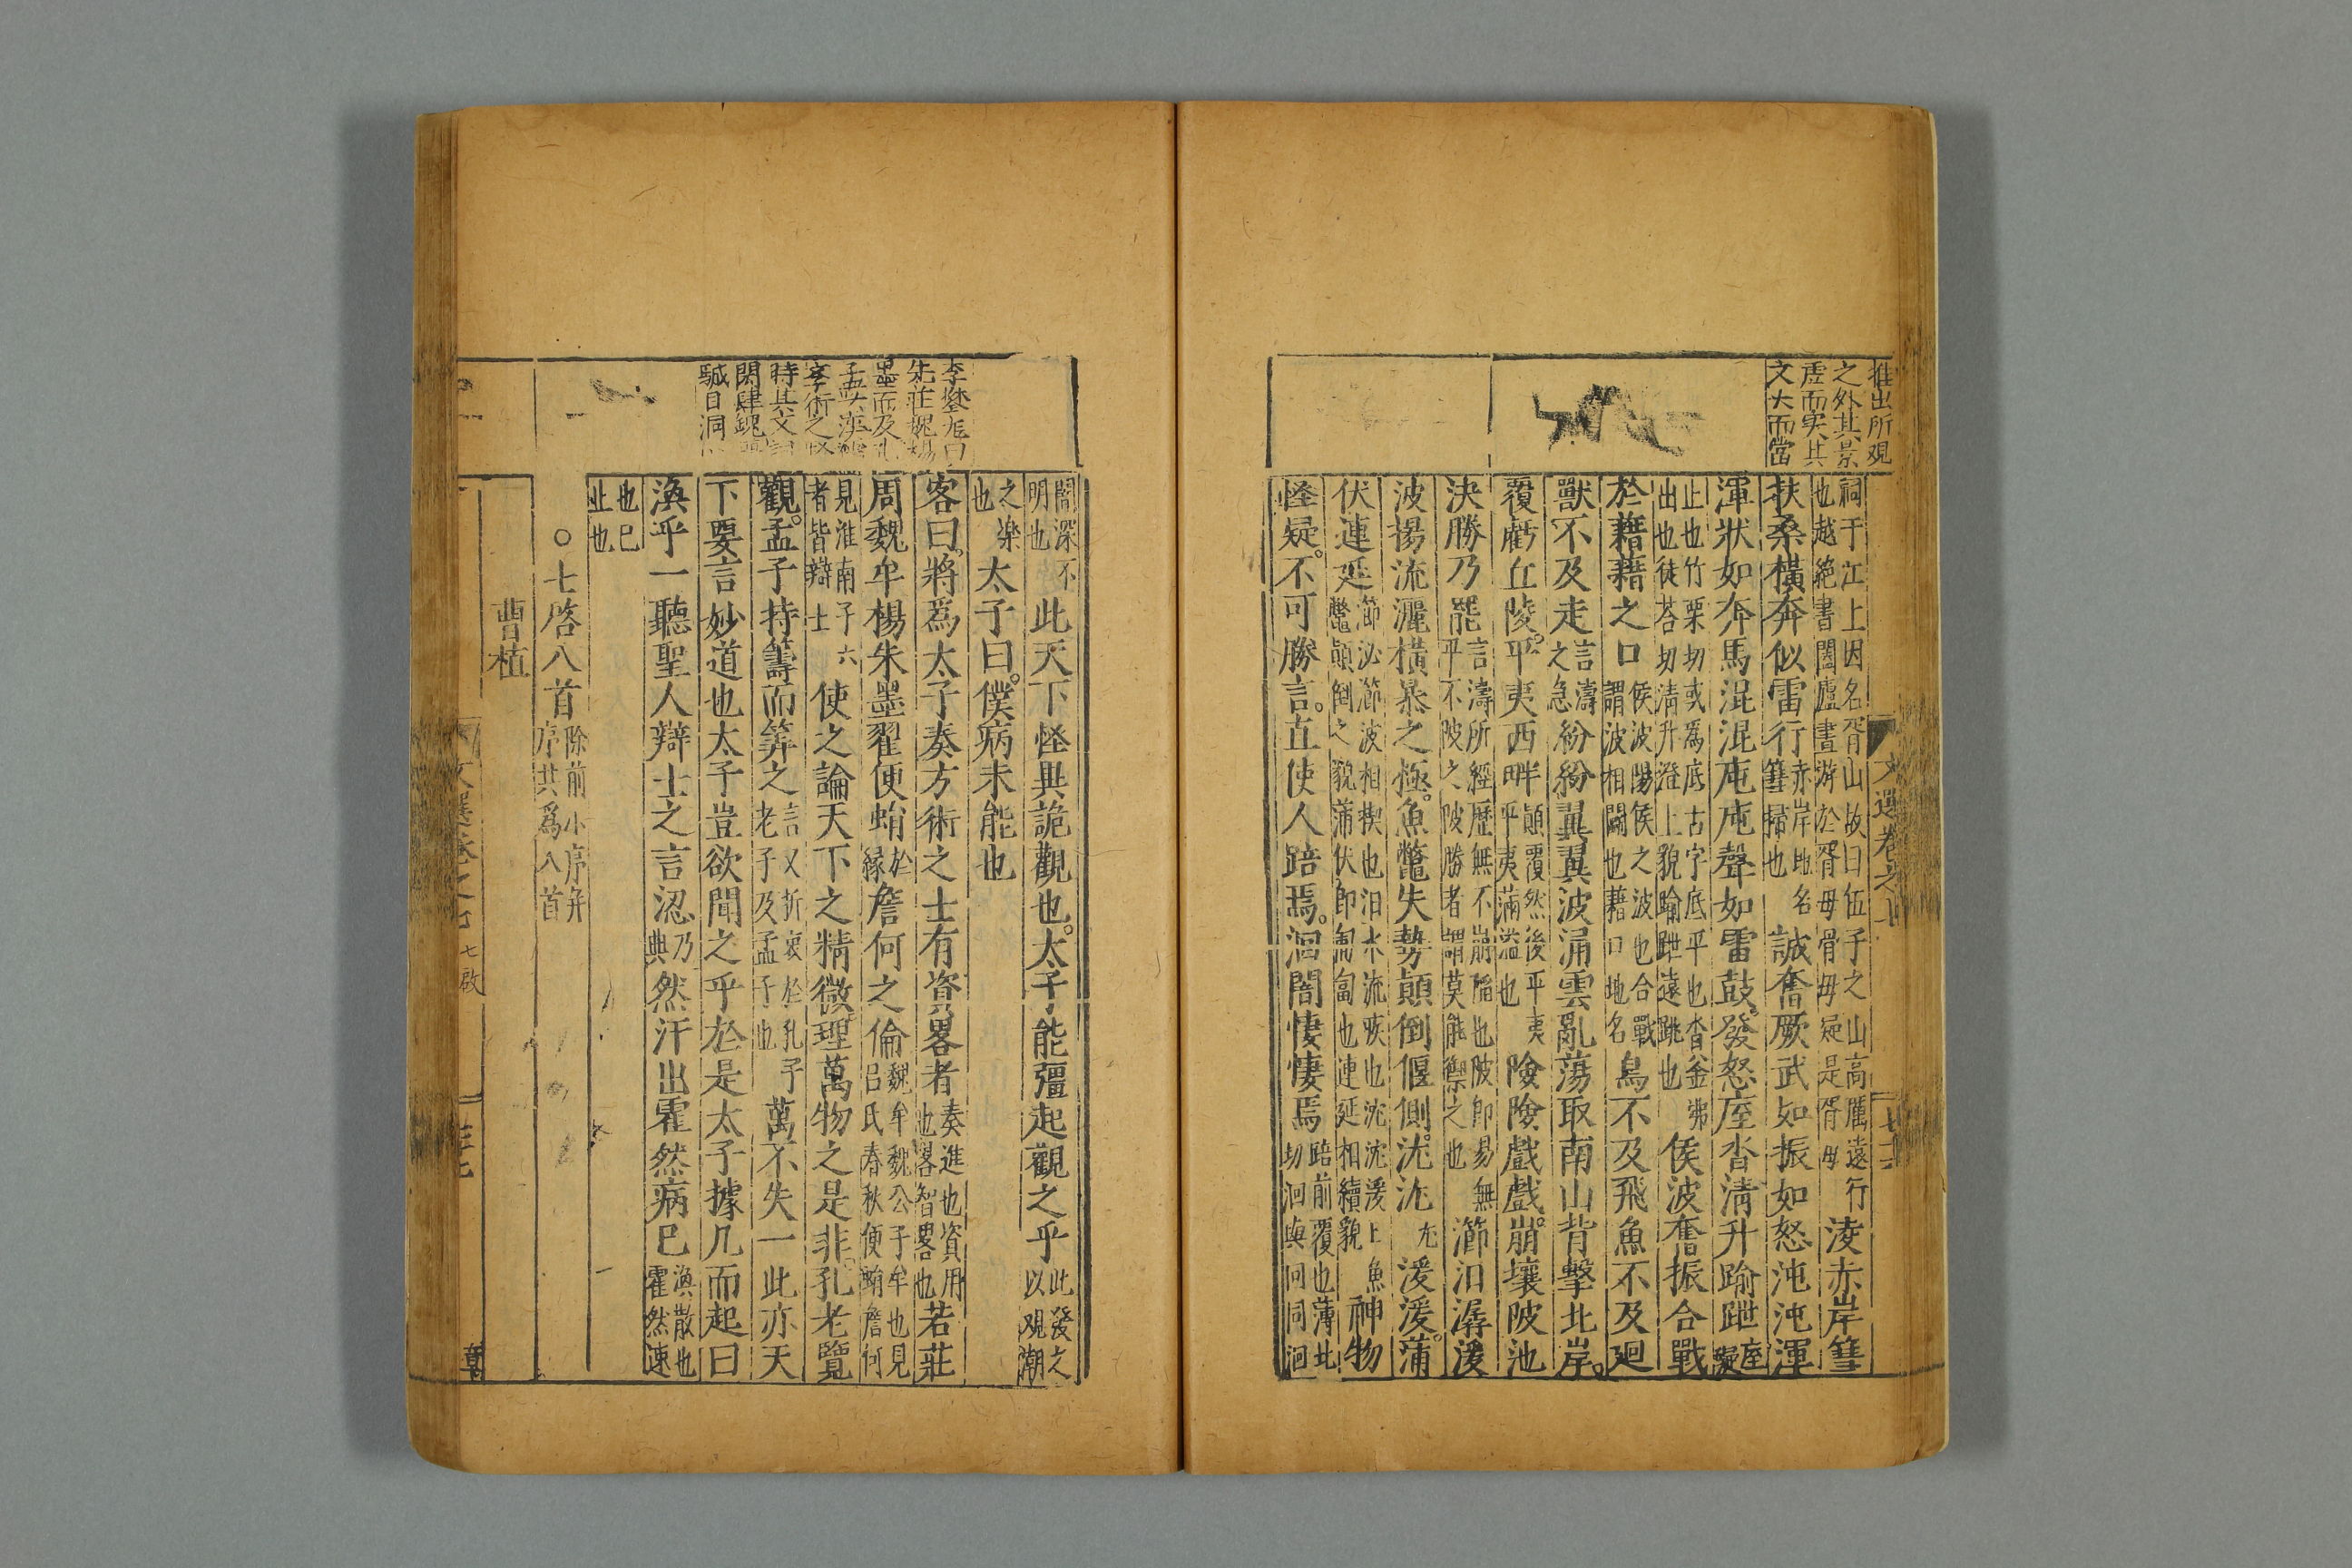 推出所观
之外其景
虛而実其
文大而當
祠于江上因名胥山故曰伍子之山高厲遠行
也越絶書闔廬晝游於胥母骨母疑是胥母
凌赤岸篲
扶桑橫奔似雷行
赤岸地名
篲掃也
誠奮厥武如振如怒沌沌渾
渾狀如奔馬混混庉庉聲如雷鼓發怒庢沓淸升踰跇
庢
礙
止也竹栗切或爲底古字底平也沓釜沸
出也徒荅切淸升澄上貌踰跇遠跳也
侯波奮振合戰
於藉藉之口
侯波陽侯之波也合戰
謂波相鬬也藉口地名
鳥不及飛魚不及廻
獸不及走
言濤
之急
紛紛翼翼波涌雲亂蕩取南山背擊北岸。
覆虧丘陵。平夷西畔
顛覆然後平夷
平夷滿溢也
險險戲戲。崩壞陂池
決勝乃罷
言濤所經歷無不崩陷也陂卽易無
平不陂之陂勝者謂莫能禦之也
瀄汩潺湲
波揚流灑橫暴之極。魚鼈失勢顛倒偃側。沋沋
尤
湲湲。蒲
伏連延
瀄泌瀄波相楔也汩水流疾也沋沋湲上魚
鼈顛倒之貌蒲伏卽匍匐也連延相續貌
神物
怪疑。不可勝言。直使人踣焉。洄闇悽悽焉
踣前覆也薄北
切洄與回同洄
文選卷之七
闇深不
明也
此天下怪異詭觀也。太子能彊起觀之乎
此發之
以观潮
之樂
也
太子曰。僕病未能也
李空同曰
先莊魏楊
墨而及孔
客曰。將爲太子奏方術之士有資畧者
奏進也資用
也畧智畧也
若莊
周魏牟楊朱墨翟便蜎
於
緣
詹何之倫
魏牟魏公子牟也見
呂氏春秋便蜎詹何
見淮南子六
者皆辯士
使之論天下之精微理萬物之是非。孔老覽
觀。孟子持籌而筭之
言又折衷於孔子
老子及孟子也
萬不失一此亦天
下要言妙道也太子豈欲聞之乎於是太子據几而起曰
渙乎一聽聖人辯士之言涊
乃
典
然汗出霍然病已
渙散也
霍然速
也已
止也
○七啓八首
除前小序并
序共爲八首
曹植
文選卷之七
七啟